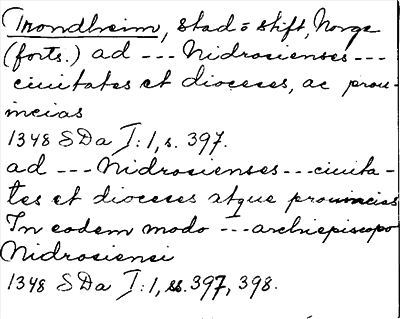 Trondheim, stad o stift, Norge
(forts.) ad --- Nidrosienses ---
ciuitates et dioceses, ac prou-
incias
1348 SDa I:1, s. 397.
ad --- Nidrosienses --- ciuita-
tes et dioceses atque prouincias
In eodem modo --- archiepiscopo
Nidrosiensi
1348 SDa I:1, ss. 397, 398.